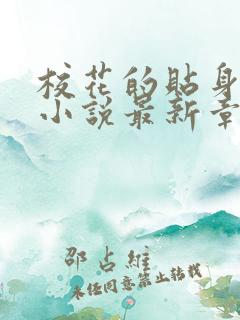 校花的貼身
小說最新章
邵占維
未經同意禁止轉載